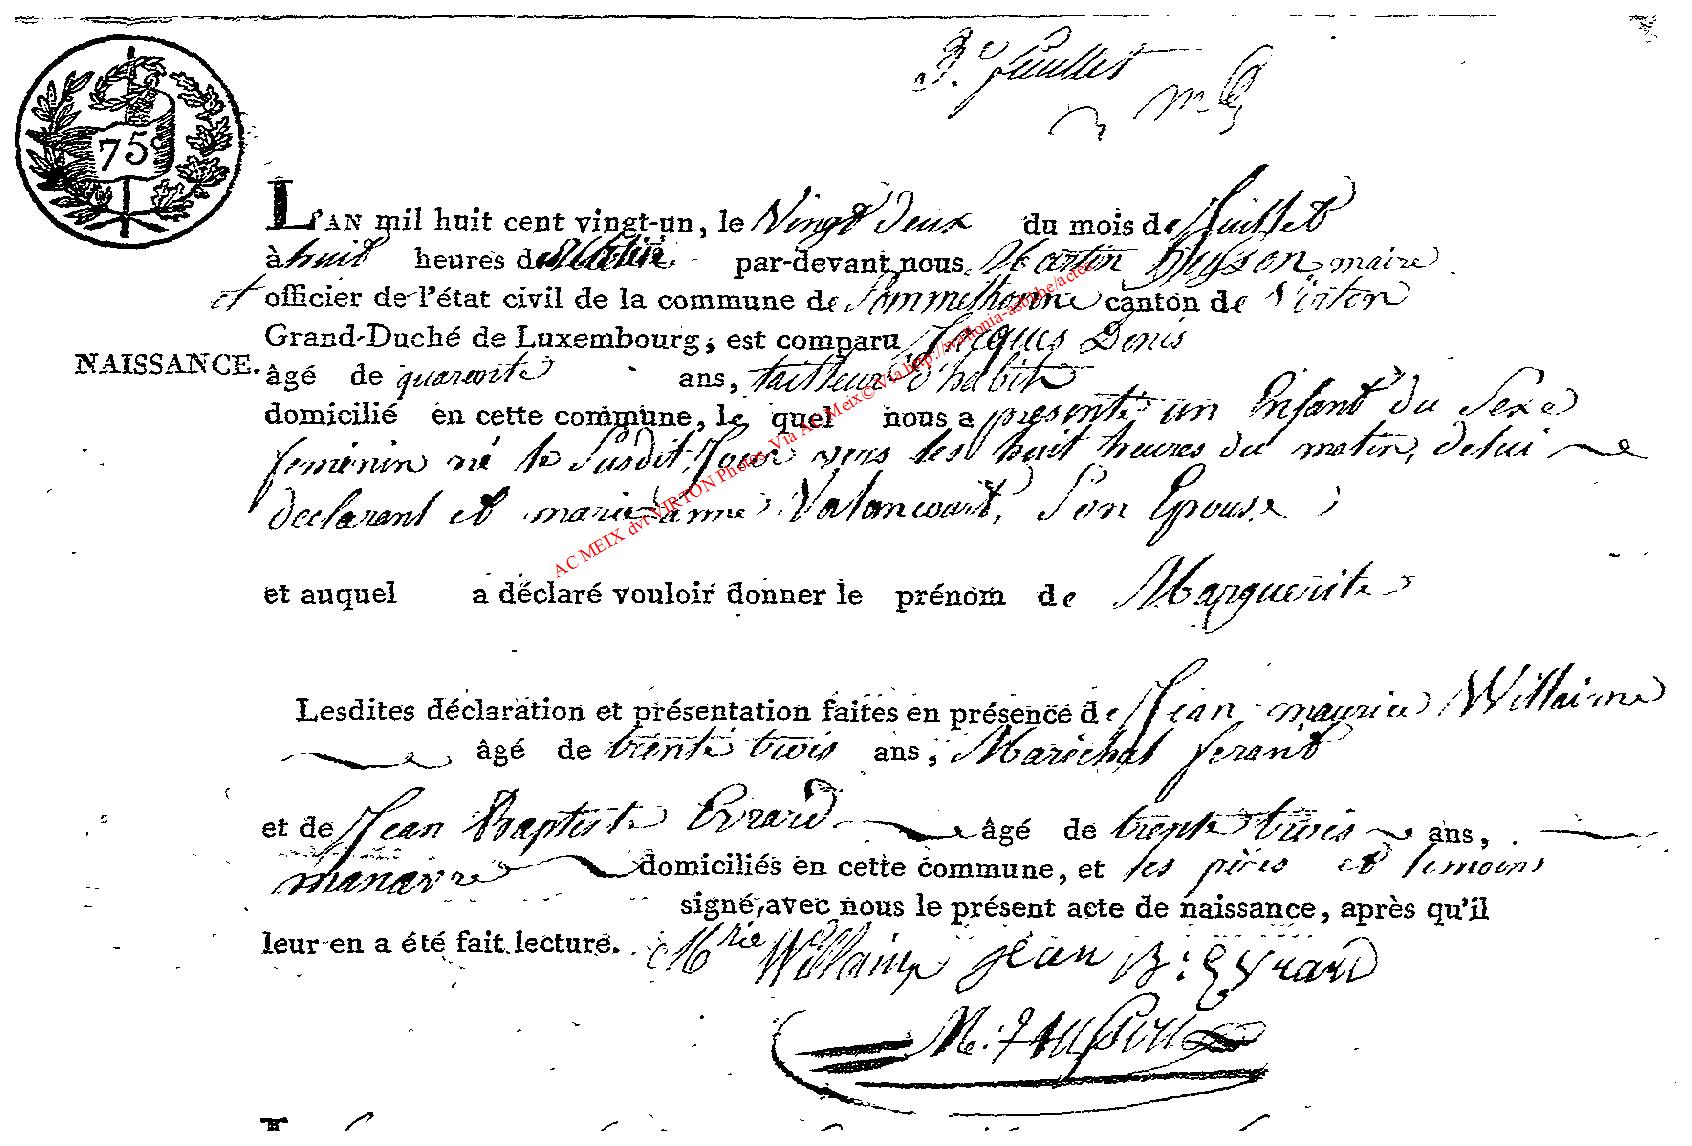 3.e feuillet
75c
L'AN mil huit cent vingt-un, le Vingt deux du mois de Juillet
à huit heures de Matin par-devant nous Martin Husson, maire
et officier de l'état civil de la commune de Sommethonne canton de Virton
Grand-Duché de Luxembourg, est comparu Jacques Denis
NAISSANCE.
âgé de quarente ans, tailleur d'habits
domicilié en cette commune, le quel nous a présenté un Enfant du Sexe
feminin né le Susdit Jour vers les huit heures du matin, de lui
declarant et marie anne Valancourt, Son Epouse
et auquel a déclaré vouloir donner le prénom de Marguerite
Lesdites déclaration et présentation faites en présence de Jean maurice Willaime
âgé de trente trois ans, Maréchal ferant
et de Jean Baptiste Evrard âgé de trente trois ans,
manœvre domiciliés en cette commune, et les pères et temoins
signé avec nous le présent acte de naissance, après qu'il
leur en a été fait lecture. Mrie Willaime Jean B: Evrard
M: Husson
AC MEIX dvt VIRTON Photos Via AC Meix